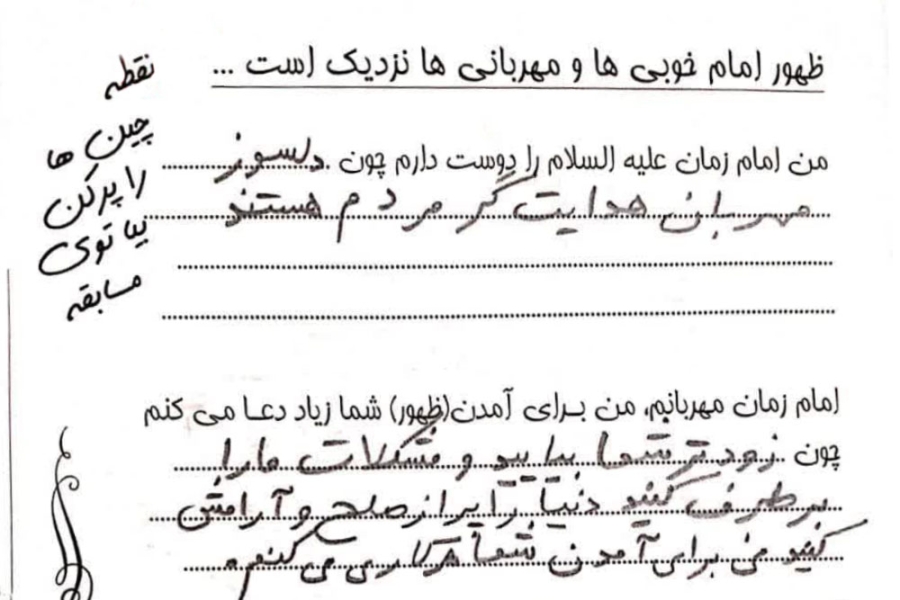 ظهور امام خوبی ها و مهربانی ها نزدیک است ...
نقطه
چین ها
را پر کن
بیا توی
مسابقه
من امام زمان علیه السلام را دوست دارم چون دلسوز
مهربان هدایت گر مردم هستند
امام زمان مهربانم، من برای آمدن(ظهور) شما زیاد دعا می کنم
چون زود تر شما بیایید و مشکلات ما را
بر طرف کنید دنیا را پر از صلح و آرامش
کنید من برای آمدن شما هر کاری می کنم.